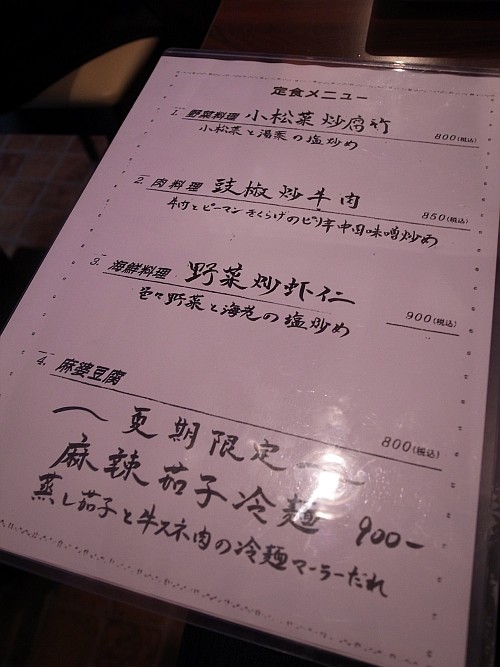 定食メニュー
1. 野菜料理 小松菜炒腐竹 800(税込)
小松菜と湯葉の塩炒め
2. 肉料理 豉椒炒牛肉 850(税込)
牛肉とピーマンきくらげのピリ辛中国味噌炒め
3. 海鮮料理 野菜炒虾仁 900(税込)
色々野菜と海老の塩炒め
4. 麻婆豆腐 800(税込)
〜夏期限定〜
麻辣茄子冷麺 900-
蒸し茄子と牛スネ肉の冷麺マーラーだれ